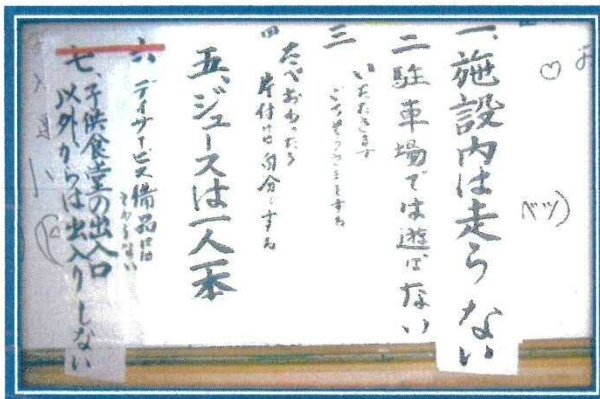 一、施設内は走らない
二 駐車場では遊ばない
三 いただきます
ごちそうさまをする
四 たべおわったら
片付けは自分でする
五、ジュースは一人一本
六 デイサービス備品には
さわらない
七、子供食堂の出入口
以外からは出入りしない